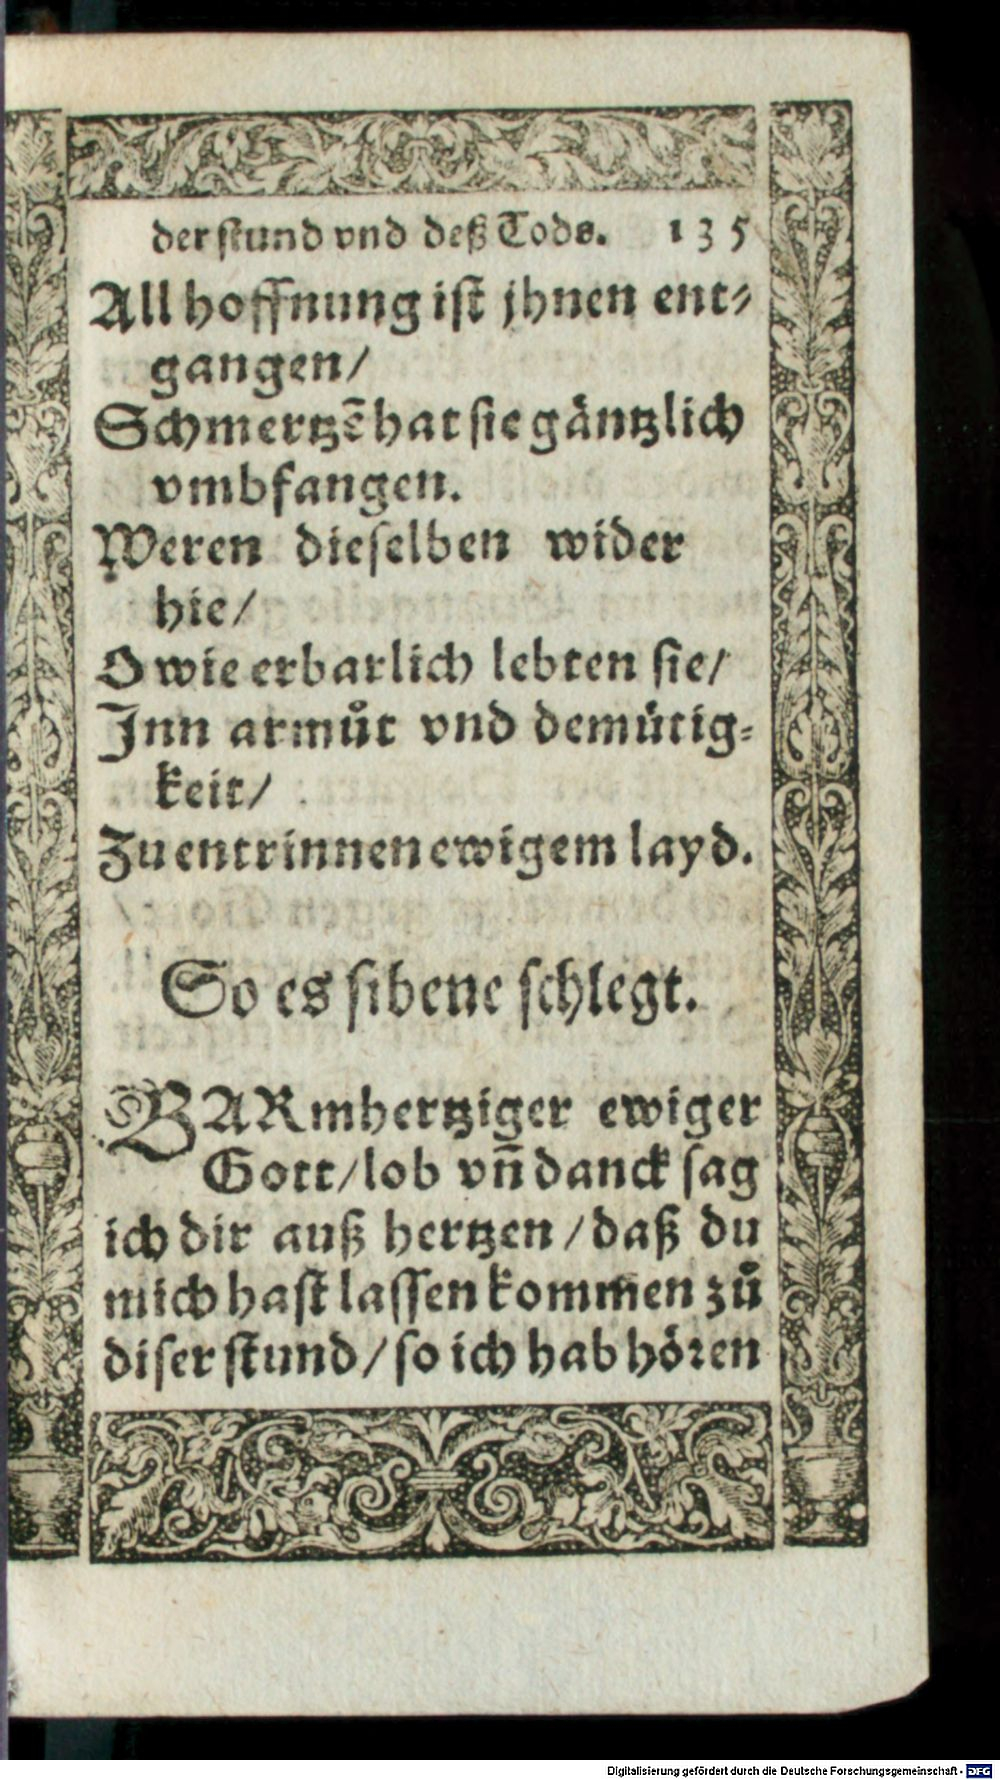 der ſtund vnd deß Tods. 135
All hoffnung iſt jhnen ent⸗
gangen/
Schmertzẽ hat ſie gäntzlich
vmbfangen.
Weren dieſelben wider
hie/
O wie erbarlich lebten ſie/
Inn armůt vnd demütig⸗
keit/
Zu entrinnen ewigem layd.
So es ſibene ſchlegt.
BARmhertziger ewiger
Gott/ lob vñ danck ſag
ich dir auß hertzen / daß du
mich haſt laſſen kommen zů
diſer ſtund/ ſo ich hab hören
Digitalisierung gefördert durch die Deutsche Forschungsgemeinschaft - DFG